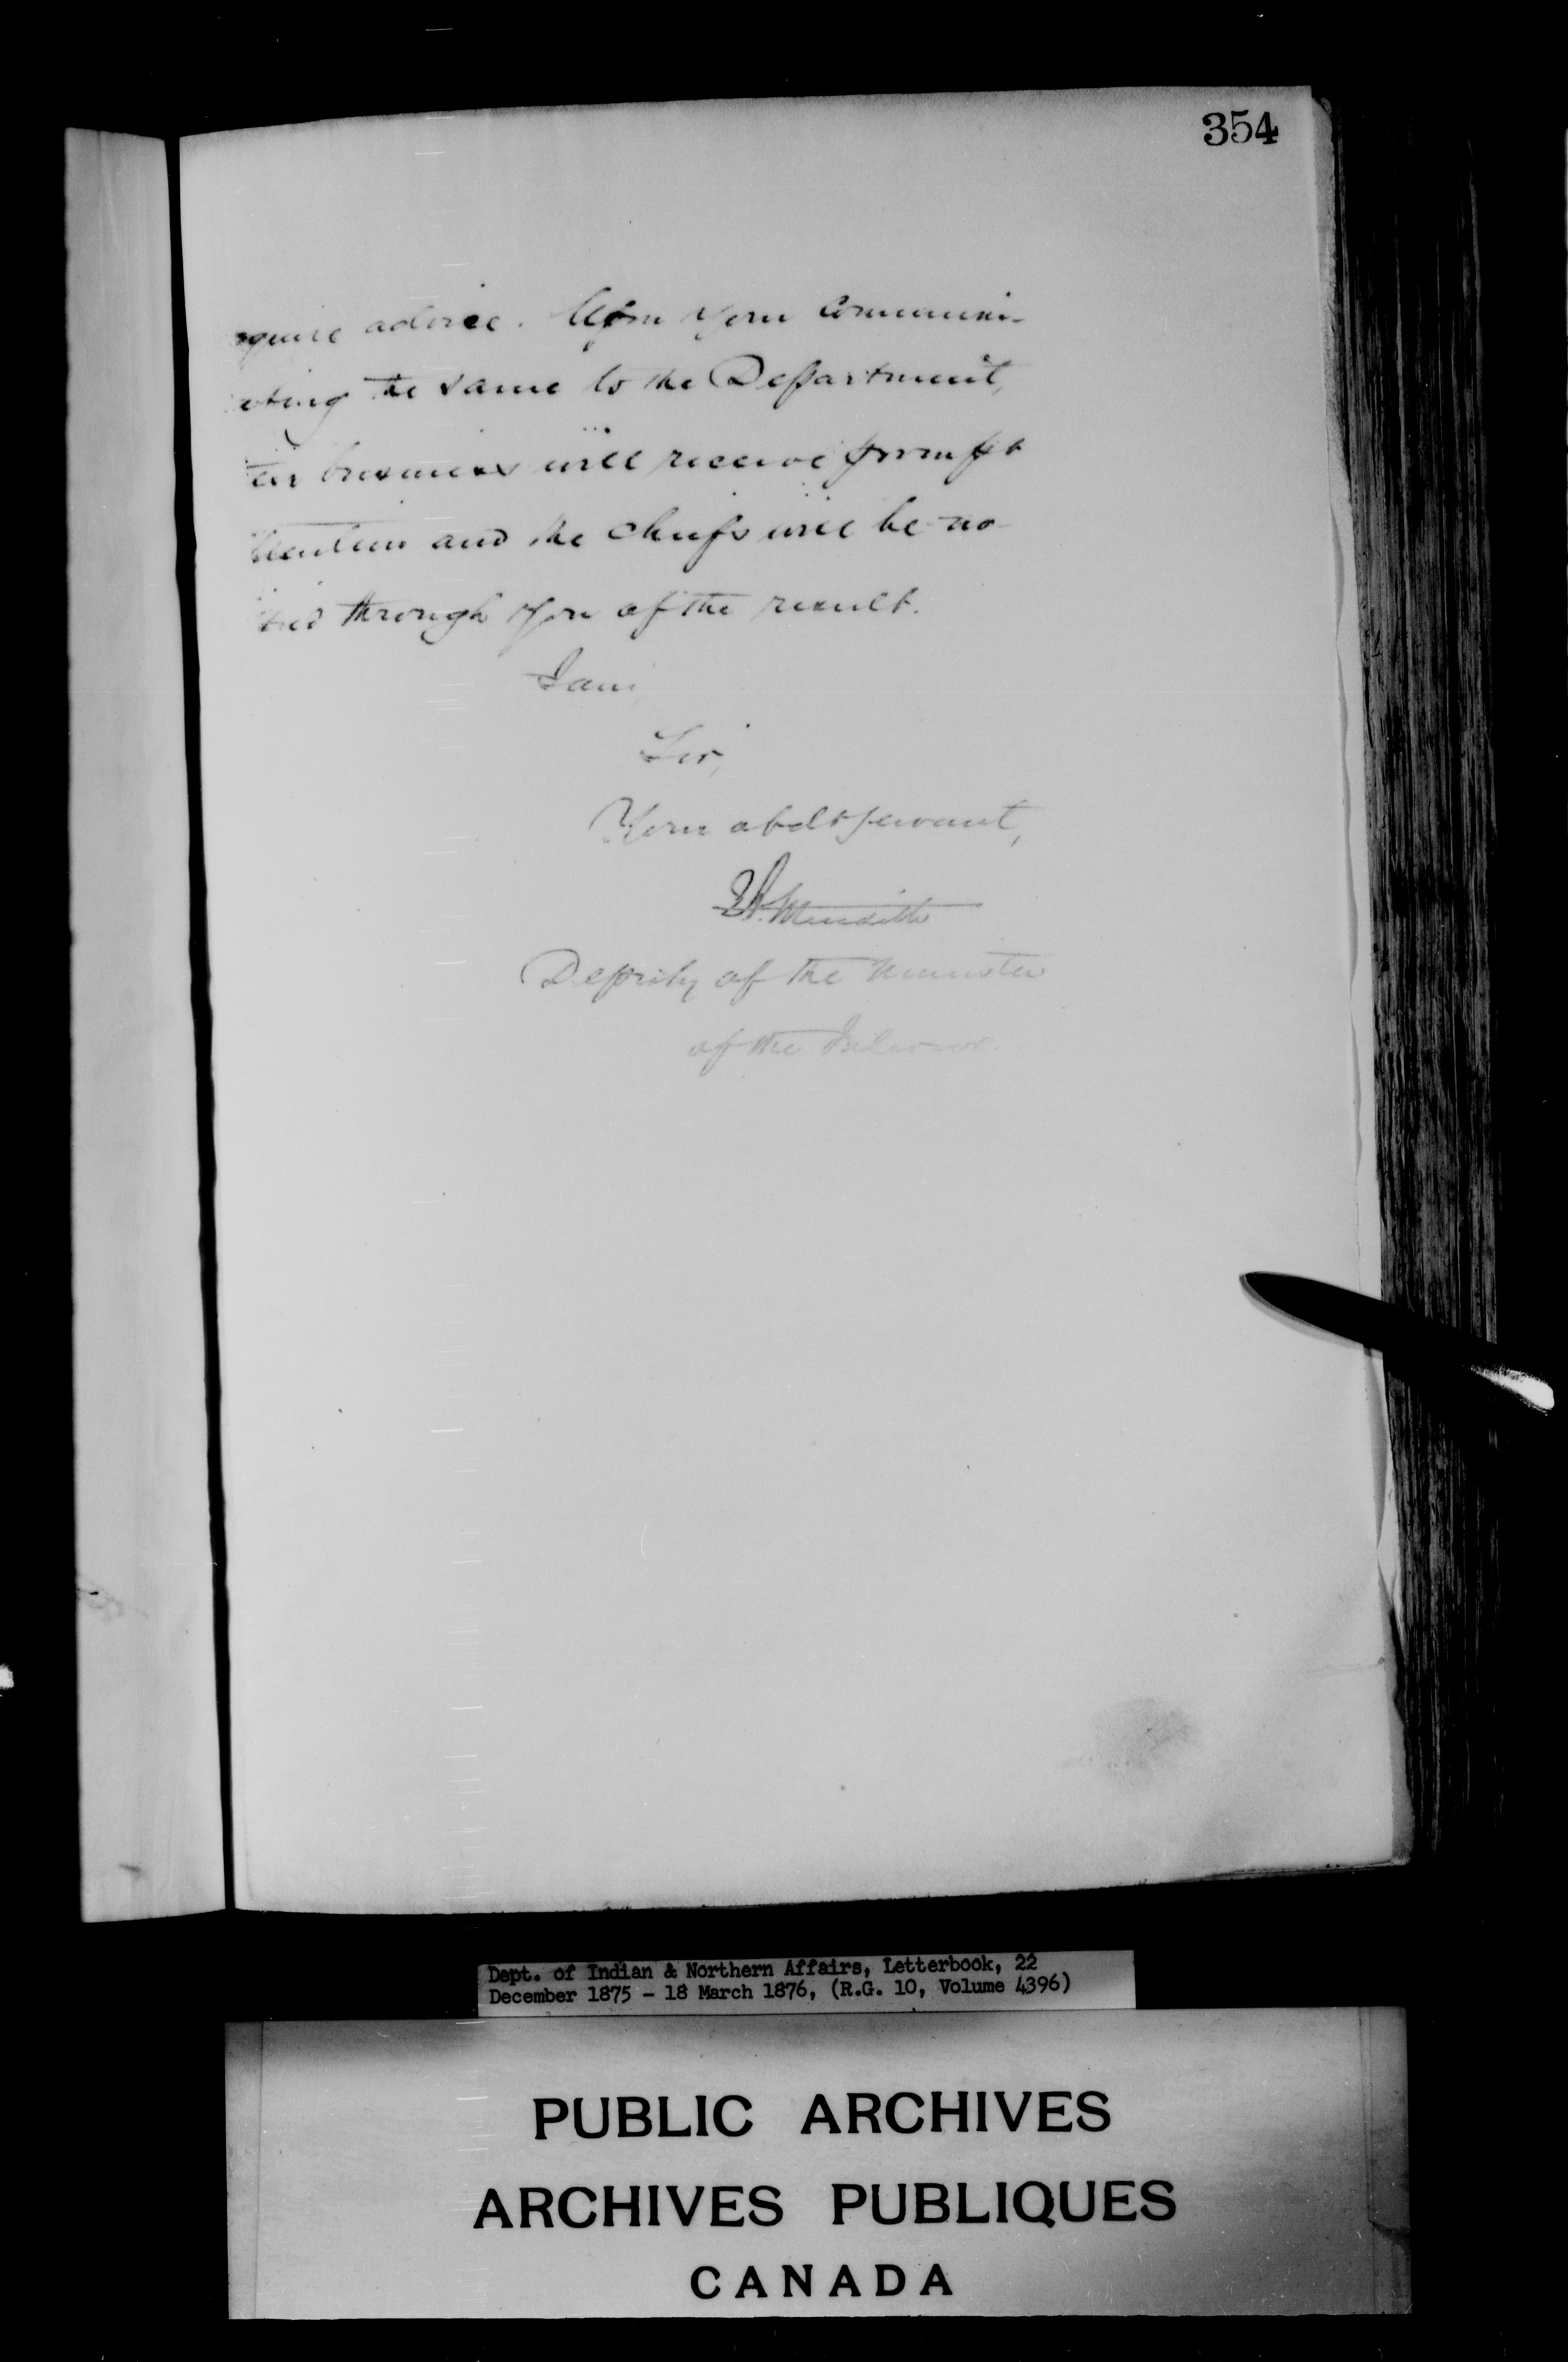 354
require advice. Upon your communi-
cating the same to the Department,
their business will receive prompt
attention and the Chiefs will be no-
tified through you of the result.
I am,
Sir,
Your obdt servant,
Meredith
Deputy of the Minister
of the Interior.
Dept. of Indian & Northern Affairs, Letterbook, 22
December 1875 - 18 March 1876, (R.G. 10, Volume 4396)
PUBLIC ARCHIVES
ARCHIVES PUBLIQUES
CANADA